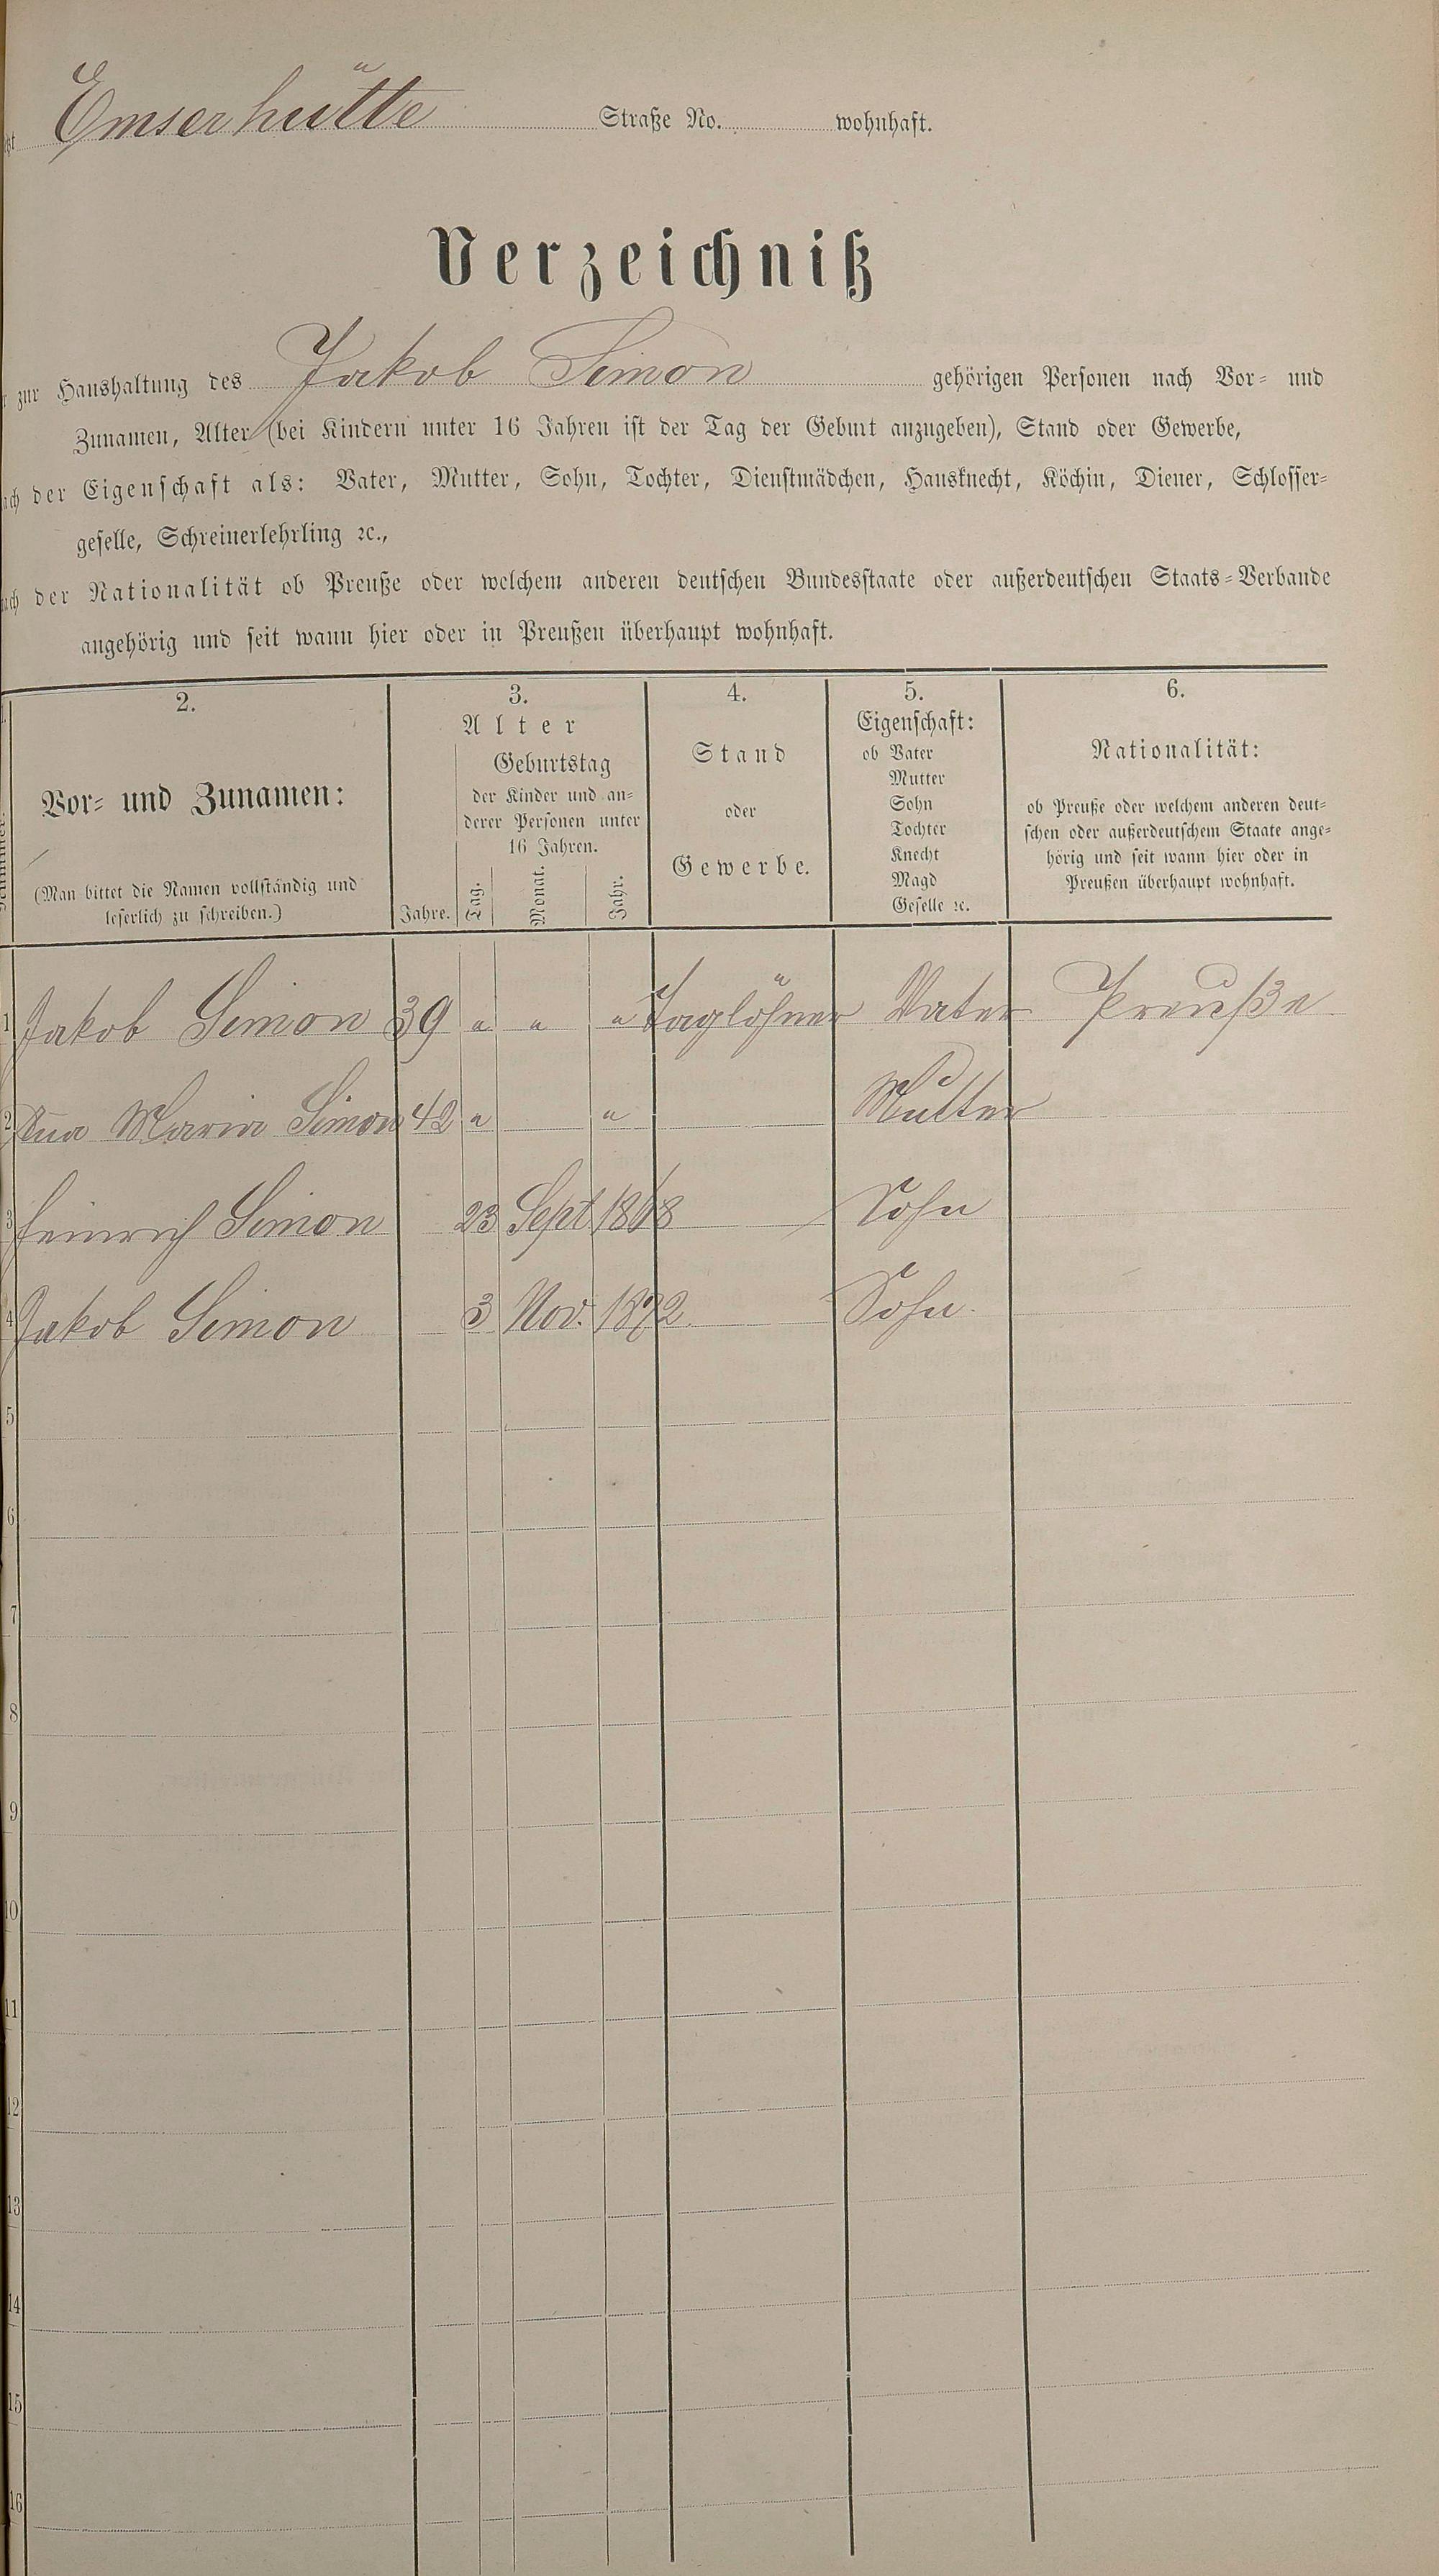 Emserhütte Straße No. wohnhaft.
Verzeichniß
zur Haushaltung des Jakob Simon gehörigen Personen nach Vor- und
Zunamen, Alter (bei Kindern unter 16 Jahren ist der Tag der Geburt anzugeben), Stand oder Gewerbe,
der Eigenschaft als: Vater, Mutter, Sohn, Tochter, Dienstmädchen, Hausknecht, Köchin, Diener, Schlosser-
geselle, Schreinerlehrling ꝛc.,
der Nationalität ob Preuße oder welchem anderen deutschen Bundesstaate oder außerdeutschen Staats-Verbande
angehörig und seit wann hier oder in Preußen überhaupt wohnhaft.
2.
Vor- und Zunamen:
(Man bittet die Namen vollständig und
leserlich zu schreiben.)
3.
Alter
Geburtstag
der Kinder und an-
derer Personen unter
16 Jahren.
Jahre. Tag. Monat. Jahr.
4.
Stand
oder
Gewerbe.
5.
Eigenschaft:
ob Vater
Mutter
Sohn
Tochter
Knecht
Magd
Geselle ꝛc.
6.
Nationalität:
ob Preuße oder welchem anderen deut-
schen oder außerdeutschem Staate ange-
hörig und seit wann hier oder in
Preußen überhaupt wohnhaft.
1 Jakob Simon 39 " " " Taglöhner Vater Preuße
2 Ana Maria Simon 42 " " Mutter
3 Heinrich Simon 23 Sept 1868 Sohn
4 Jakob Simon 3 Nov. 1872 Sohn.
5
6
7
8
9
10
11
12
13
14
15
16